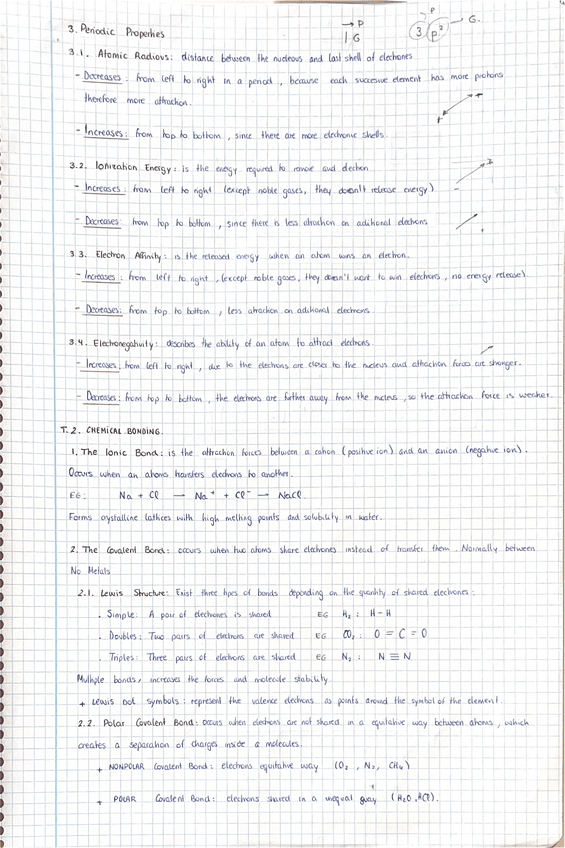 → P
| G
P
3 p² → G.
3. Periodic Properties
3.1. Atomic Radious: distance between the nucleous and last shell of electrones
- Decreases: from left to right in a period, because each succesive element has more protons
therefore more attraction.
- Increases: from top to bottom, since there are more electronic shells.
3.2. Ionization Energy: is the energy required to remove and electron
- Increases: from left to right (except noble gases, they doesn't release energy)
- Decreases: from top to bottom, since there is less atraction on aditional electrons
3.3. Electron Affinity: is the released energy when an atom wins an electron.
- Increases: from left to right, (except noble gases, they doesn't want to win electrons, no energy release)
- Decreases: from top to bottom, less atraction on aditional electrons
3.4. Electronegativity: describes the ability of an atom to attract electrons
- Increases: from left to right, due to the electrons are closer to the nucleus and attraction forces are stronger.
- Decreases: from top to bottom, the electrons are further away from the nucleus, so the attraction force is weaker.
T.2. CHEMICAL BONDING.
1. The Ionic Bond: is the attraction forces between a cation (positive ion) and an anion (negative ion).
Occurs when an atoms transfers electrons to another.
EG: Na + Cl → Na⁺ + Cl⁻ → NaCl
Forms crystalline lattices with high melting points and solubility in water.
2. The Covalent Bond: occurs when two atoms share electrones instead of transfer them. Normally between
No Metals
2.1. Lewis Structure: Exist three tipes of bonds depending on the quantity of shared electrones:
. Simple: A pair of electrones is shared EG H₂: H-H
. Doubles: Two pairs of electrons are shared EG CO₂: O=C=O
. Triples: Three pairs of electrons are shared EG N₂: N≡N
Multiple bonds, increases the forces and molecule stability
+ Lewis Dot Symbols: represent the valence electrons as points around the symbol of the element.
2.2. Polar Covalent Bond: occurs when electrons are not shared in a equitative way between atoms, which
creates a separation of charges inside a molecules.
+ NONPOLAR Covalent Bond: electrons equitative way (O₂, N₂, CH₄)
+ POLAR Covalent Bond: electrons shared in a unequal way (H₂O, HCl).